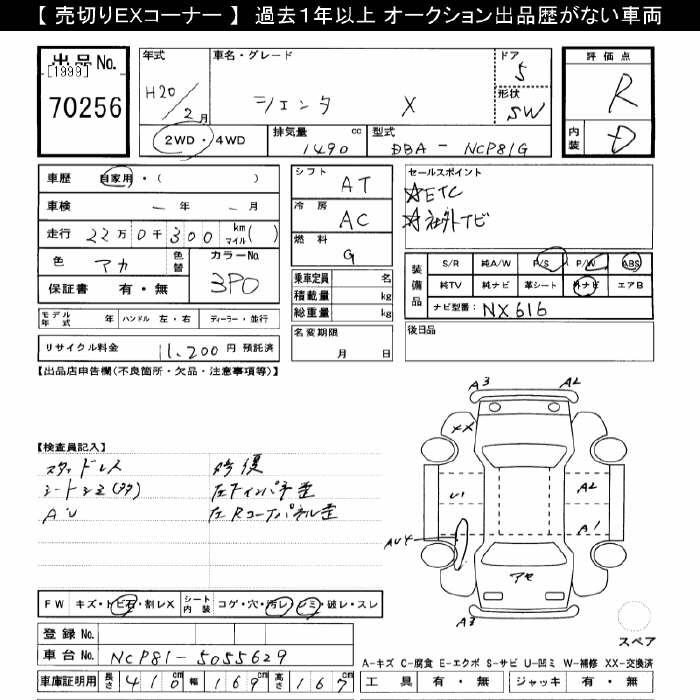 【 売切りEXコーナー 】 過去1年以上 オークション出品歴がない車両
出品No.
[1999]
70256
年式
H20/2月
車名・グレード
シエンタ X
ドア
5
形状
SW
評価点
R
内装
D
2WD・4WD
排気量 1490 cc
型式 DBA-NCP81G
車歴 自家用・( )
車検 ー年 ー月
走行 22万0千300 km マイル( )
色 アカ 色替
カラーNo. 3P0
保証書 有・無
モデル年式 年 ハンドル 左・右 ディーラー・並行
リサイクル料金 11,200円 預託済
シフト AT
冷房 AC
燃料 G
乗車定員 名
積載量 kg
総重量 kg
名変期限
月 日
セールスポイント
☆ETC
☆社外ナビ
装備品
S/R 純A/W P/S P/W ABS
純TV 純ナビ 革シート 外ナビ エアB
ナビ型番: NX616
後日品
【出品店申告欄(不良箇所・欠品・注意事項等)】
【検査員記入】
スタッドレス
シートシミ(多)
AU
修復
左Fインパネ歪
左Rコーナーパネル歪
A3 A2
XX
U1 A2
A1
AU4
アセ
A3
スペア
FW キズ・トビ石・割レX
シート内装 コゲ・穴・汚レ・シミ・破レ・スレ
登録No.
車台No. NCP81-5055629
車庫証明用 長さ 410cm 幅 169cm 高さ 167cm
A-キズ C-腐食 E-エクボ S-サビ U-凹ミ W-補修 XX-交換済
工具 有・無 ジャッキ 有・無